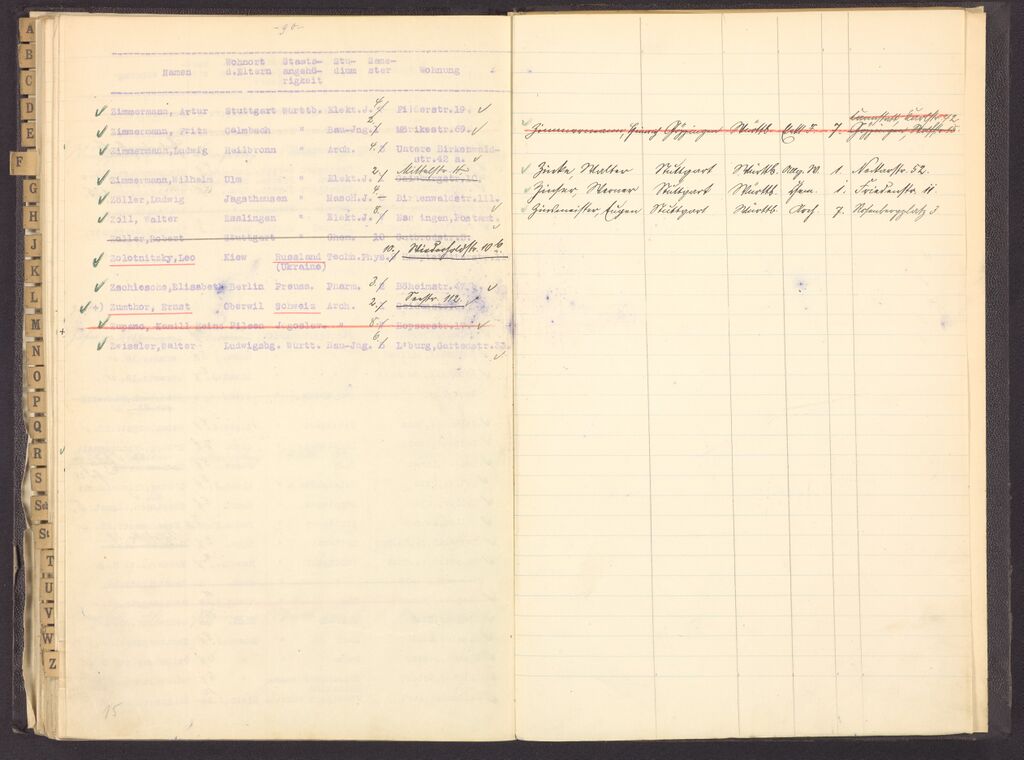 -90-
Namen Wohnort d.Eltern Staats-angehö-rigkeit Stu-dium Seme-ster Wohnung
Zimmermann, Artur Stuttgart Württb. Elekt.J. 4. Filderstr.19.
Zimmermann, Fritz Calmbach " Bau-Jng. 2. Mörikestr.69.
Zimmermann,Ludwig Heilbronn " Arch. 4. Untere Birkenwald-
str.42 a.
Zimmermann,Wilhelm Ulm " Elekt.J. 2. Mittelstr. 11
Zöller,Ludwig Jagsthausen " Masch.J. 4 Birkenwaldstr.111.
Zoll, Walter Esslingen " Elekt.J. 8. Esslingen,Postamt.
Zoller,Robert Stuttgart " Chem. 10
Zolotnitsky,Leo Kiew Russland Techn.Phys. 10. Wiederholdstr. 10 b.
(Ukraine)
Zschiesche,Elisabeth Berlin Preuss. Pharm. 3. Böheimstr.47.
+) Zumthor, Ernst Oberwil Schweiz Arch. 2. Seestr. 112.
+ Zupanc, Kamill Heinz Pilsen Jugoslav. " 8. Hopserstr.
Zwissler,Walter Ludwigsbg. Württ. Bau-Jng. 6. L'burg,Gartenstr.33.
15
Cannstatt
Zimmermann, Göppingen Württb. 7. Göppingen
Zinke, Walter Stuttgart Württb. 1. Neckarstr. 52.
Zinser, Werner Stuttgart Württb. Chem. 1. Friedenstr. 11
Zinsmeister, Eugen Stuttgart Württb. Hoch. 7. Rosenbergplatz 3
A
B
C
D
E
F
G
H
J
K
L
M
N
O
P
Q
R
S
Sch
St
T
U
V
W
Z